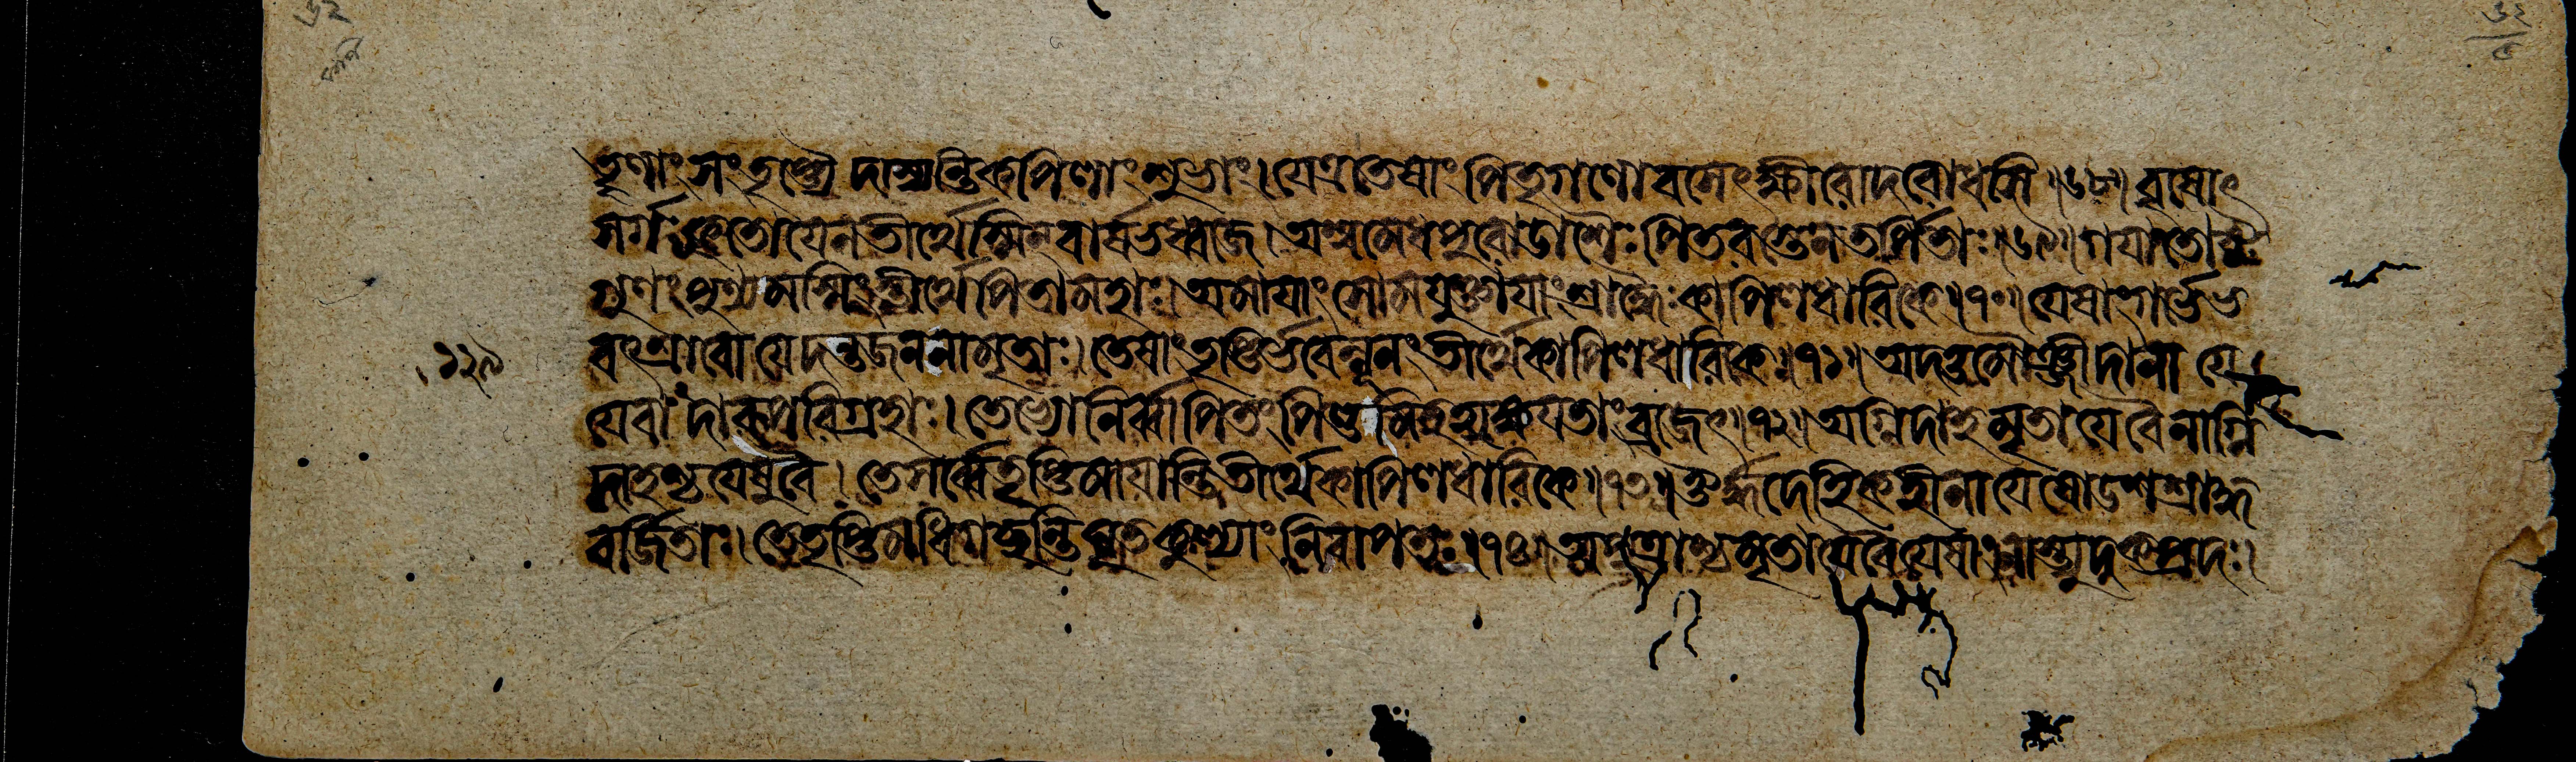 তৄণাং সংতৃপ্ত্যৈ দাস্যন্তি কপিলাং শুভাং। যেঽত্র তেষাং পিতৃগণো বসেৎ ক্ষীরোদরোধসি॥৬৮॥ বৃষোৎ
সর্গঃ কৃতো যেন তীর্থেস্মিন্ বার্ষভধ্বজে। অশ্বমেধপুরোডাশৈঃ পিতরস্তেন তর্পিতাঃ॥৬৯॥ গয়াতোষ্ট
গুণং পুণ্যমস্মিংস্তীর্থে পিতামহাঃ। অমায়াং সোমযুক্তায়াং শ্রাদ্ধৈঃ কাপিলধারিকে॥৭০॥ যেষাং গর্ভেভ
বৎ স্রাবো যেদন্তজননা মৃতাঃ। তেষাং তৃপ্তির্ভবেন্নূনং তীর্থে কাপিলধারিকে॥৭১॥ অদত্তমৌঞ্জীদানা যে
১২৯
যে বাদারপরিগ্রহাঃ। তেভ্যো নির্ব্বাপিতং পিণ্ডমিহ হ্যক্ষয়তাং ব্রজেৎ॥৭২॥ অগ্নিদাহমৃতা যে বৈ নাগ্নি
দাহশ্চ যেষু বৈ। তে সর্ব্বে তৃপ্তিমায়ান্তি তীর্থে কাপিলধারিকে॥৭৩॥ ঔর্দ্ধ্বদেহিকহীনা যে ষোডশশ্রাদ্ধ
বর্জিতাঃ। তে তৃপ্তিমধিগচ্ছন্তি ঘৃতকুল্যাং নিবাপতঃ॥৭৪॥ অপুত্রাশ্চ মৃতা যে বৈ যেষাং নাস্ত্যুদকপ্রদঃ।